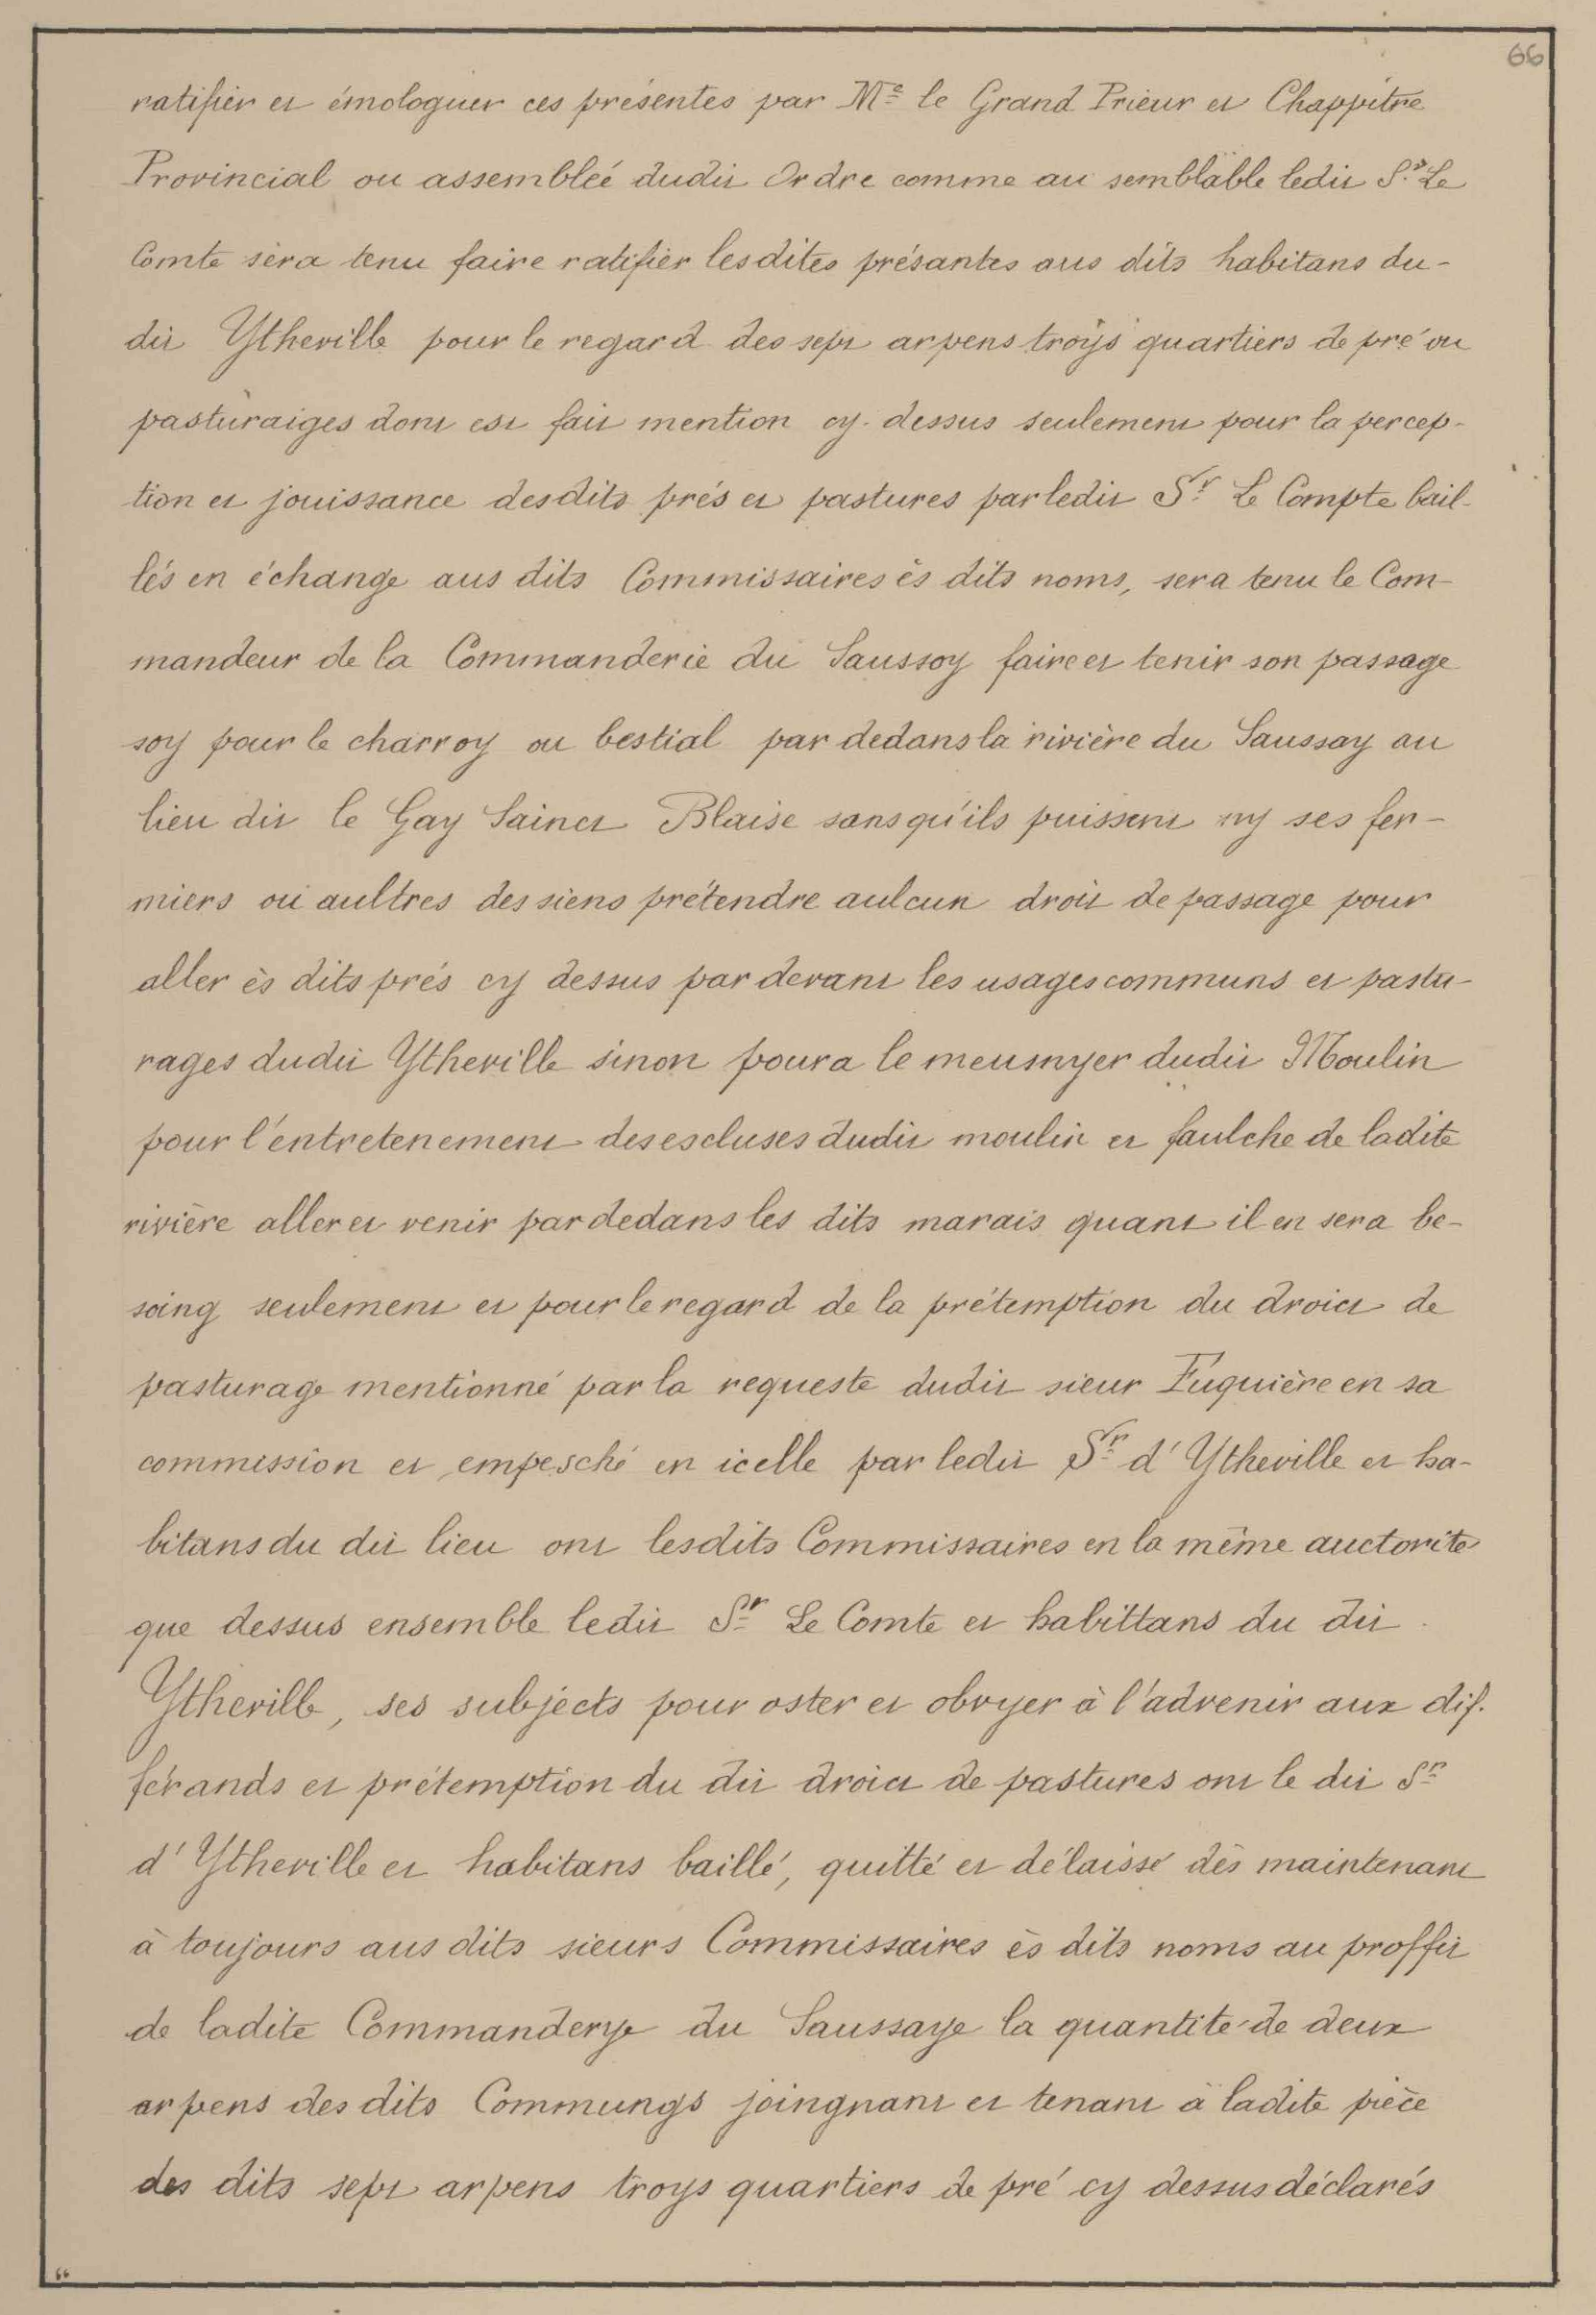 66
ratifier et émologuer ces présentes par Me le Grand Prieur et Chappitre
Provincial ou assembléé dudit Ordre comme au semblable ledit Sr Le
Comte sera tenu faire ratifier lesdites présantes aus dits habitans du-
dit Ytheville pour le regard des sept arpens troys quartiers de pré ou
pasturaiges dont est fait mention cy-dessus seulement pour la percep-
tion et jouissance desdits prés et pastures par ledit Sr Le Compte bail-
lés en échange aus dits Commissaires ès dits noms, sera tenu le Com-
mandeur de la Commanderie du Saussoy faire et tenir son passage
soy pour le charroy ou bestial par dedans la rivière du Saussay au
lieu dit le Gay Sainct Blaise sans qu'ils puissent ny ses fer-
miers ou aultres des siens prétendre aulcun droit de passage pour
aller ès dits prés cy dessus par devant les usages communs et pastu-
rages dudit Ytheville sinon poura le meusnyer dudit Moulin
pour l'entretenement des escluses dudit moulin et faulche de ladite
rivière aller et venir par dedans les dits marais quant il en sera be-
soing seulement et pour le regard de la prétemption du droict de
pasturage mentionné par la requeste dudit sieur Fuquière en sa
commission et empesché en icelle par ledit Sr d'Ytheville et ha-
bitans du dit lieu ont lesdits Commissaires en la même auctorité
que dessus ensemble ledit Sr Le Comte et habittans du dit
Ytheville, ses subjects pour oster et obvyer à l'advenir aux dif-
férands et prétemption du dit droict de pastures ont le dit Sr
d'Ytheville et habitans baillé, quitté et délaissé dès maintenant
à toujours aus dits sieurs Commissaires ès dits noms au proffit
de ladite Commanderye du Saussaye la quantité de deux
arpens des dits Commungs joingnant et tenant à ladite pièce
des dits sept arpens troys quartiers de pré cy dessus déclarés
66